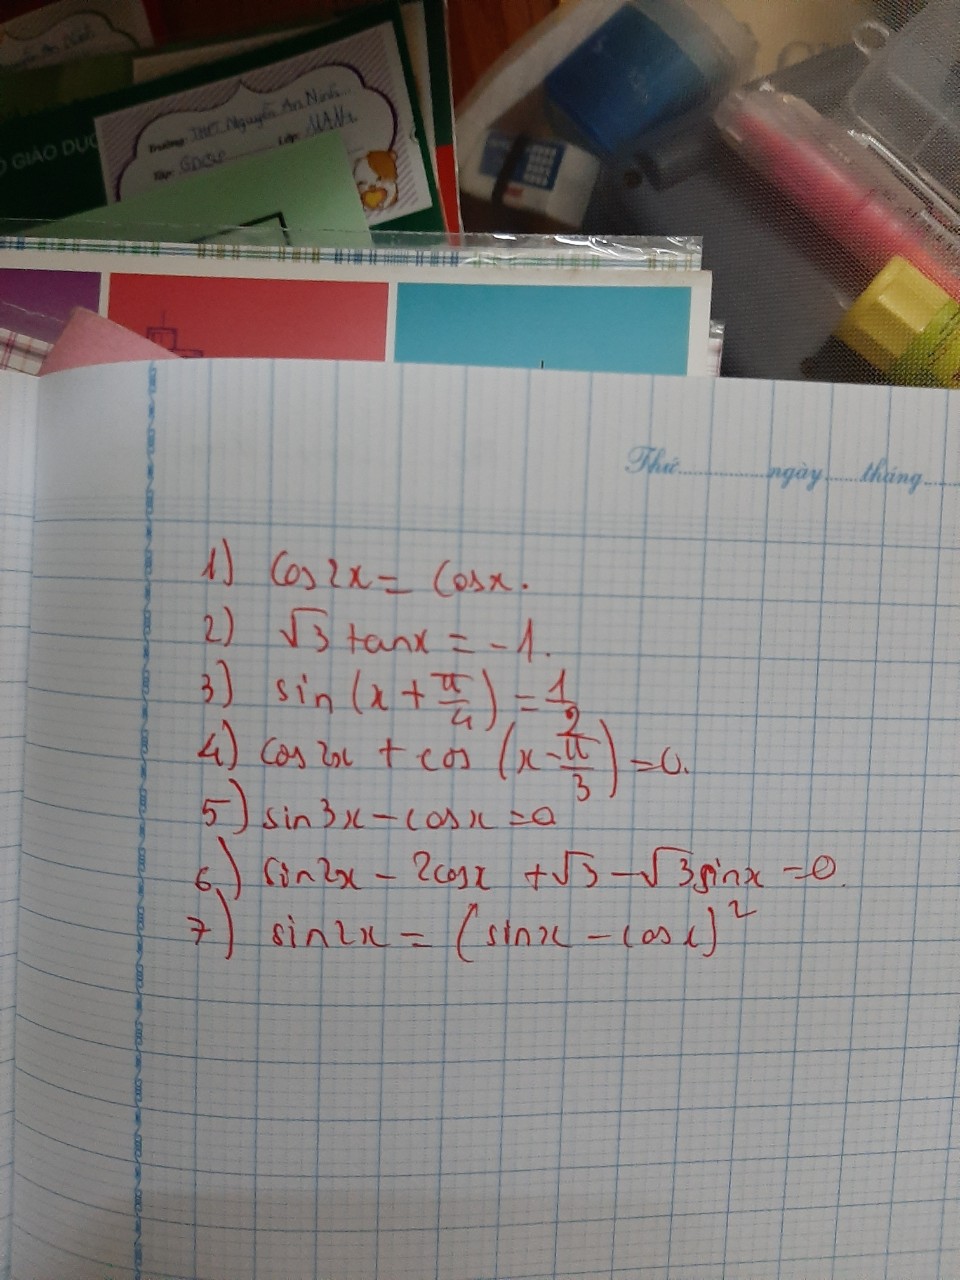 Trường: THPT Nguyễn An Ninh
Lớp: 11AN1
Tập: GDCD
Ộ GIÁO DỤC
Thứ ............ ngày ...... tháng ......
1) cos2x = cosx.
2) √3 tanx = -1.
3) sin (x + π/4) = 1/2
4) cos2x + cos (x - π/3) = 0.
5) sin3x - cosx = 0
6) sin2x - 2cosx + √3 - √3 sinx = 0.
7) sin2x = (sinx - cosx)²